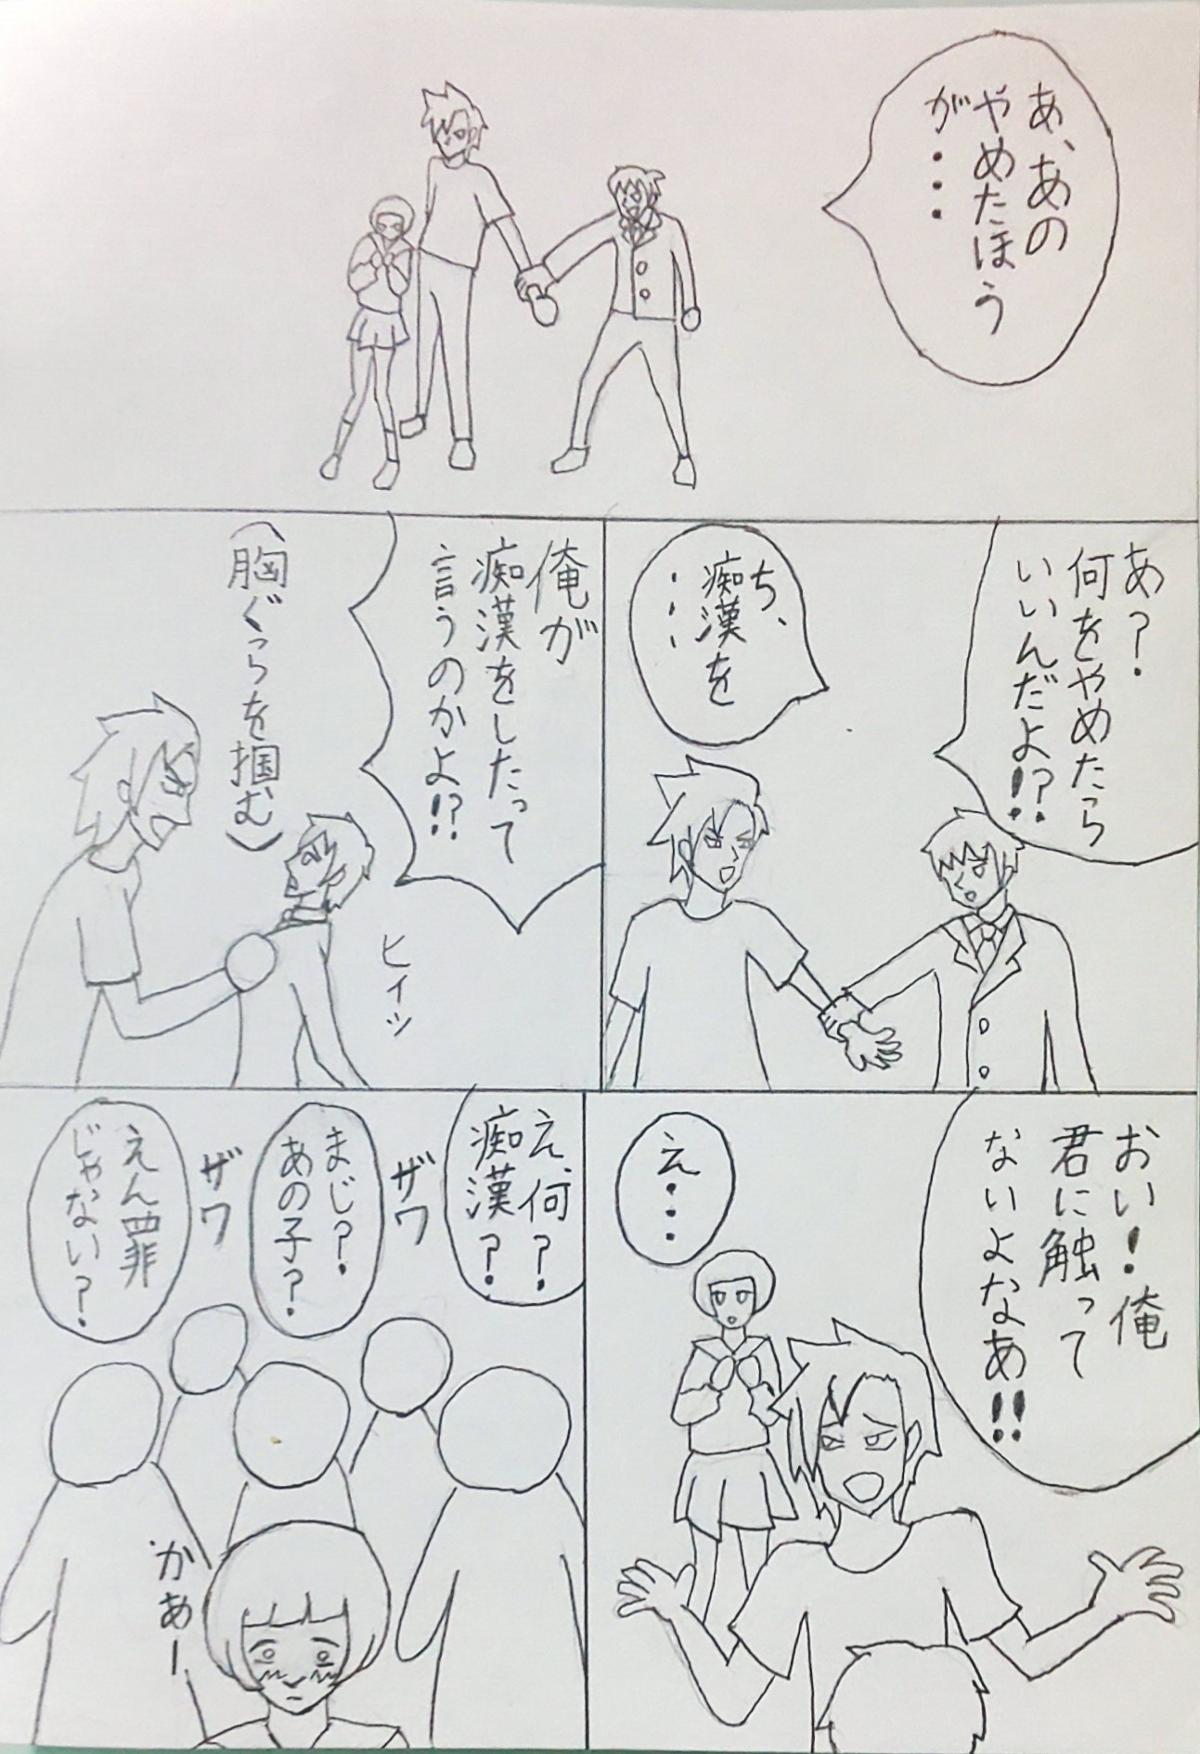 あ、あの
やめたほう
が・・・
あ?
何をやめたら
いいんだよ!?
ち、
痴漢を
・・・
俺が
痴漢をしたって
言うのかよ!?
(胸ぐらを掴む)
ヒィッ
おい!俺
君に触って
ないよなあ!!
え・・・
え、何?
痴漢?
ザワ
まじ?
あの子?
ザワ
えん罪
じゃない?
かぁー